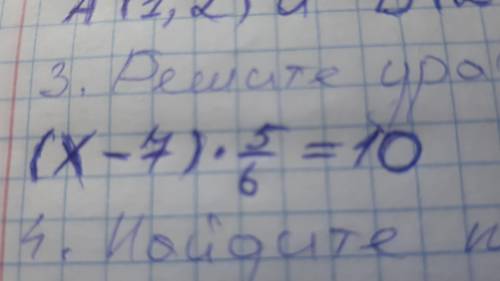 3. Решите ура
(x - 7) · 5/6 = 10
4. Найдите